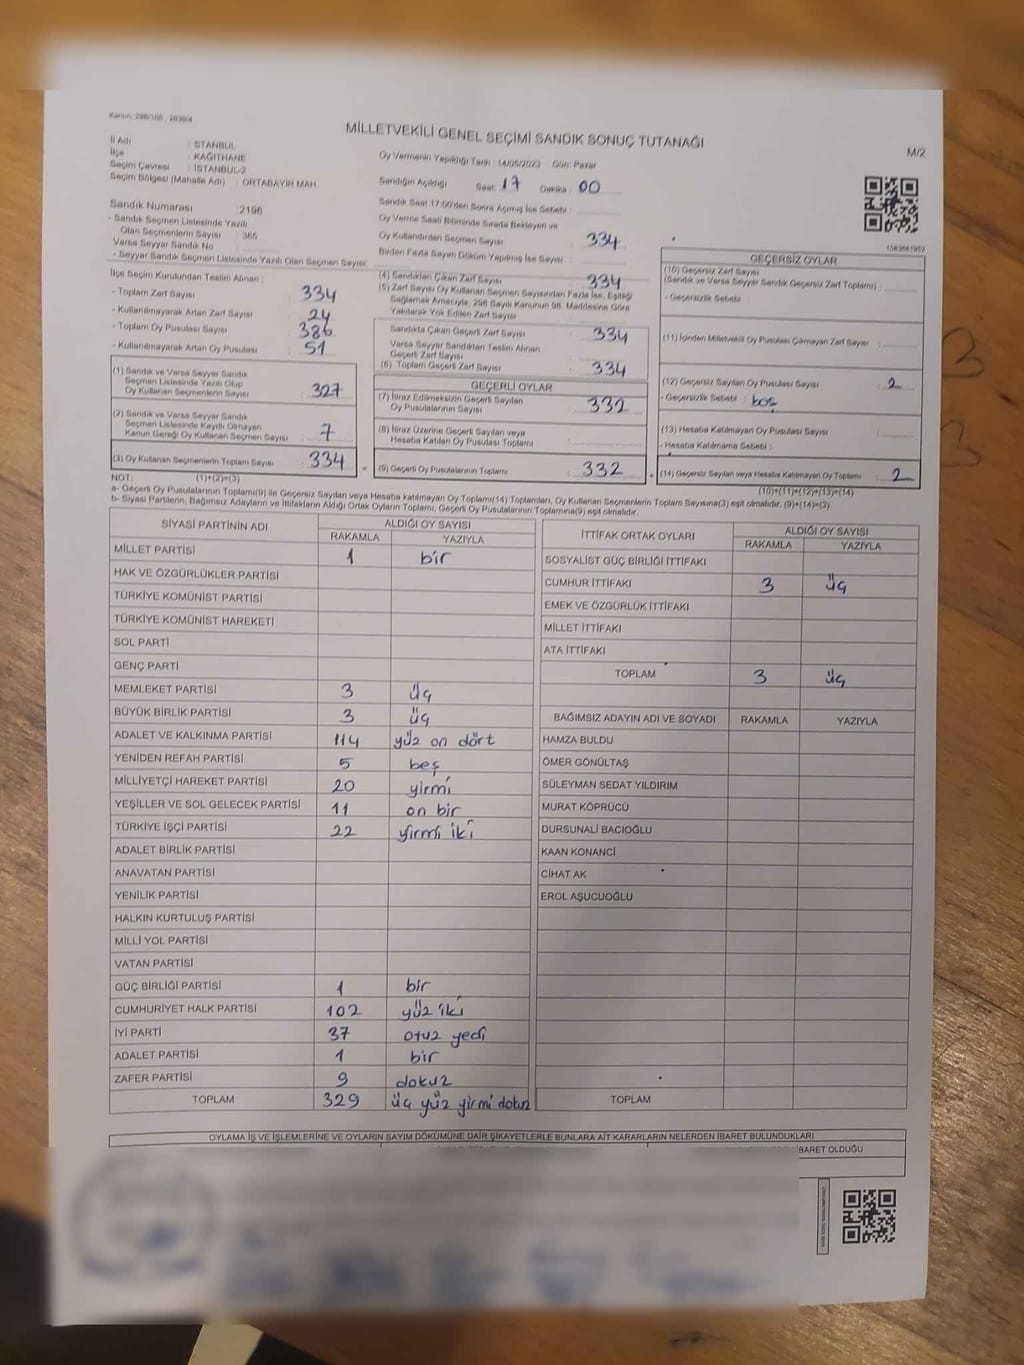 Kanun: 298/105 , 2839/4
MİLLETVEKİLİ GENEL SEÇİMİ SANDIK SONUÇ TUTANAĞI
M/2
İl Adı : STANBUL
İlçe : KAĞITHANE
Seçim Çevresi : İSTANBUL-2
Seçim Bölgesi (Mahalle Adı) : ORTABAYIR MAH.
Oy Vermenin Yapıldığı Tarih : 14/05/2023 Gün: Pazar
Sandığın Açıldığı Saat: 17 Dakika : 00
Sandık Numarası : 2196
- Sandık Seçmen Listesinde Yazılı
Olan Seçmenlerin Sayısı : 365
Varsa Seyyar Sandık No
- Seyyar Sandık Seçmen Listesinde Yazılı Olan Seçmen Sayısı
Sandık Saat 17:00'den Sonra Açılmış İse Sebebi :
Oy Verme Saati Bitiminde Sırada Bekleyen ve
Oy Kullandırılan Seçmen Sayısı : 334
Birden Fazla Sayım Döküm Yapılmış İse Sayısı :
1583661952
İlçe Seçim Kurulundan Teslim Alınan :
- Toplam Zarf Sayısı : 334
- Kullanılmayarak Artan Zarf Sayısı : 24
- Toplam Oy Pusulası Sayısı : 386
- Kullanılmayarak Artan Oy Pusulası : 51
(4) Sandıktan Çıkan Zarf Sayısı : 334
(5) Zarf Sayısı Oy Kullanan Seçmen Sayısından Fazla İse, Eşitliği
Sağlamak Amacıyla, 298 Sayılı Kanunun 98. Maddesine Göre
Yakılarak Yok Edilen Zarf Sayısı :
Sandıkta Çıkan Geçerli Zarf Sayısı : 334
Varsa Seyyar Sandıktan Teslim Alınan
Geçerli Zarf Sayısı
(6) Toplam Geçerli Zarf Sayısı : 334
GEÇERSİZ OYLAR
(10) Geçersiz Zarf Sayısı
(Sandık ve Varsa Seyyar Sandık Geçersiz Zarf Toplamı) :
- Geçersizlik Sebebi :
(11) İçinden Milletvekili Oy Pusulası Çıkmayan Zarf Sayısı :
(12) Geçersiz Sayılan Oy Pusulası Sayısı : 2
- Geçersizlik Sebebi : boş
(13) Hesaba Katılmayan Oy Pusulası Sayısı :
- Hesaba Katılmama Sebebi :
(14) Geçersiz Sayılan veya Hesaba Katılmayan Oy Toplamı : 2
(10)+(11)+(12)+(13)=(14)
(1) Sandık ve Varsa Seyyar Sandık
Seçmen Listesinde Yazılı Olup
Oy Kullanan Seçmenlerin Sayısı : 327
(2) Sandık ve Varsa Seyyar Sandık
Seçmen Listesinde Kayıtlı Olmayan
Kanun Gereği Oy Kullanan Seçmen Sayısı : 7
(3) Oy Kullanan Seçmenlerin Toplam Sayısı : 334
GEÇERLİ OYLAR
(7) İtiraz Edilmeksizin Geçerli Sayılan
Oy Pusulalarının Sayısı : 332
(8) İtiraz Üzerine Geçerli Sayılan veya
Hesaba Katılan Oy Pusulası Toplamı :
(9) Geçerli Oy Pusulalarının Toplamı : 332
NOT: (1)+(2)=(3)
a- Geçerli Oy Pusulalarının Toplamı(9) ile Geçersiz Sayılan veya Hesaba katılmayan Oy Toplamı(14) Toplamları, Oy Kullanan Seçmenlerin Toplam Sayısına(3) eşit olmalıdır. (9)+(14)=(3)
b- Siyasi Partilerin, Bağımsız Adayların ve İttifakların Aldığı Ortak Oyların Toplamı, Geçerli Oy Pusulalarının Toplamına(9) eşit olmalıdır.
SİYASİ PARTİNİN ADI ALDIĞI OY SAYISI
RAKAMLA YAZIYLA
MİLLET PARTİSİ 1 bir
HAK VE ÖZGÜRLÜKLER PARTİSİ
TÜRKİYE KOMÜNİST PARTİSİ
TÜRKİYE KOMÜNİST HAREKETİ
SOL PARTİ
GENÇ PARTİ
MEMLEKET PARTİSİ 3 üç
BÜYÜK BİRLİK PARTİSİ 3 üç
ADALET VE KALKINMA PARTİSİ 114 yüz on dört
YENİDEN REFAH PARTİSİ 5 beş
MİLLİYETÇİ HAREKET PARTİSİ 20 yirmi
YEŞİLLER VE SOL GELECEK PARTİSİ 11 on bir
TÜRKİYE İŞÇİ PARTİSİ 22 yirmi iki
ADALET BİRLİK PARTİSİ
ANAVATAN PARTİSİ
YENİLİK PARTİSİ
HALKIN KURTULUŞ PARTİSİ
MİLLİ YOL PARTİSİ
VATAN PARTİSİ
GÜÇ BİRLİĞİ PARTİSİ 1 bir
CUMHURİYET HALK PARTİSİ 102 yüz iki
İYİ PARTİ 37 otuz yedi
ADALET PARTİSİ 1 bir
ZAFER PARTİSİ 9 dokuz
TOPLAM 329 üç yüz yirmi dokuz
İTTİFAK ORTAK OYLARI ALDIĞI OY SAYISI
RAKAMLA YAZIYLA
SOSYALİST GÜÇ BİRLİĞİ İTTİFAKI
CUMHUR İTTİFAKI 3 üç
EMEK VE ÖZGÜRLÜK İTTİFAKI
MİLLET İTTİFAKI
ATA İTTİFAKI
TOPLAM 3 üç
BAĞIMSIZ ADAYIN ADI VE SOYADI RAKAMLA YAZIYLA
HAMZA BULDU
ÖMER GÖNÜLTAŞ
SÜLEYMAN SEDAT YILDIRIM
MURAT KÖPRÜCÜ
DURSUNALİ BACIOĞLU
KAAN KONANCİ
CİHAT AK
EROL AŞUCUOĞLU
TOPLAM
OYLAMA İŞ VE İŞLEMLERİNE VE OYLARIN SAYIM DÖKÜMÜNE DAİR ŞİKAYETLERLE BUNLARA AİT KARARLARIN NELERDEN İBARET BULUNDUKLARI
BARET OLDUĞU